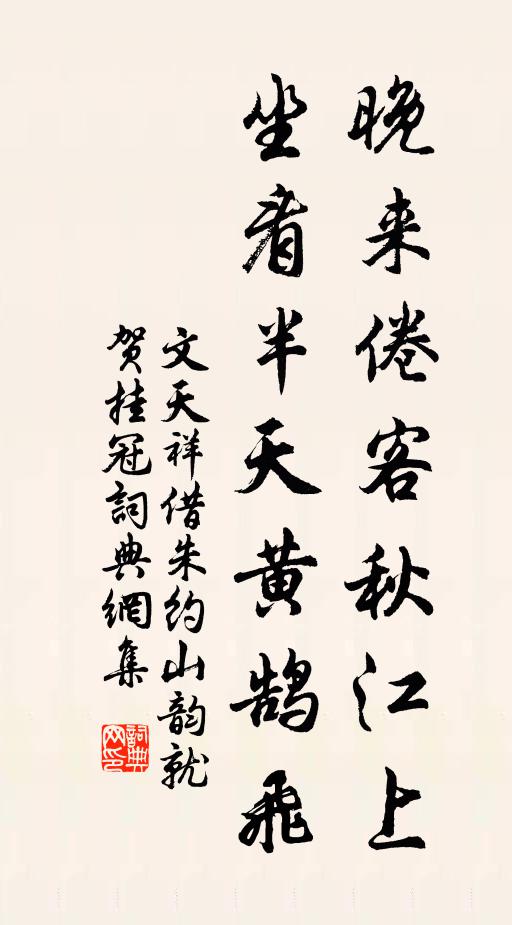 晚来倦客秋江上
坐看半天黄鹄飛
文天祥借朱约山韵就
贺挂冠詞典網集
詞典网印